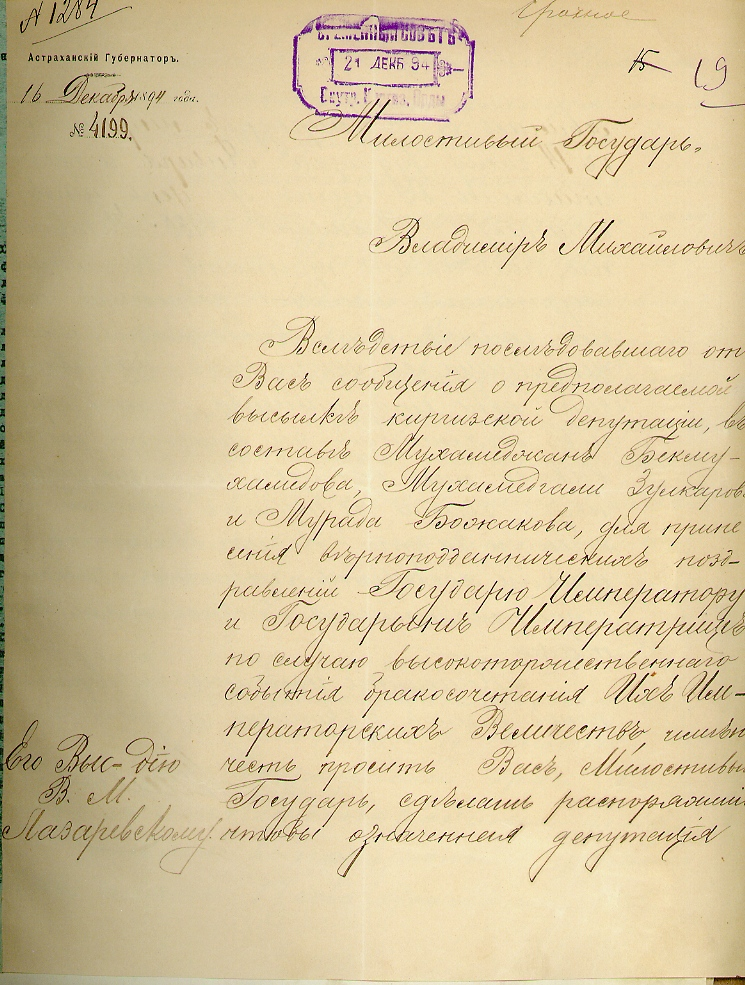 № 1284
Срочное
Астраханскій Губернаторъ.
16 Декабря 1894 года.
№ 4199.
ВРЕМЕННЫЙ СОВѢТЪ
21 ДЕКБ 94
Внутр. Кирг. Орды
15 19
Милостивый Государь,
Владиміръ Михайловичъ
Вслѣдствіе послѣдовавшаго от
Васъ сообщенія о предполагаемой
высылкѣ киргизской депутаціи, въ
составѣ Мухамеджана Бекму-
хамедова, Мухамедгали Зулкаров
и Мурада Божакова, для прине
сенія вѣрноподданническихъ позд-
равленій Государю Императору
и Государынѣ Императрицѣ
по случаю высокоторжественнаго
событія бракосочетанія Ихъ Им-
ператорскихъ Величествъ, имѣю
честь просить Васъ, Милостивый
Государь, сдѣлать распоряженіе
чтобы означенная депутація
Его Выс-дію
В. М.
Лазаревскому.